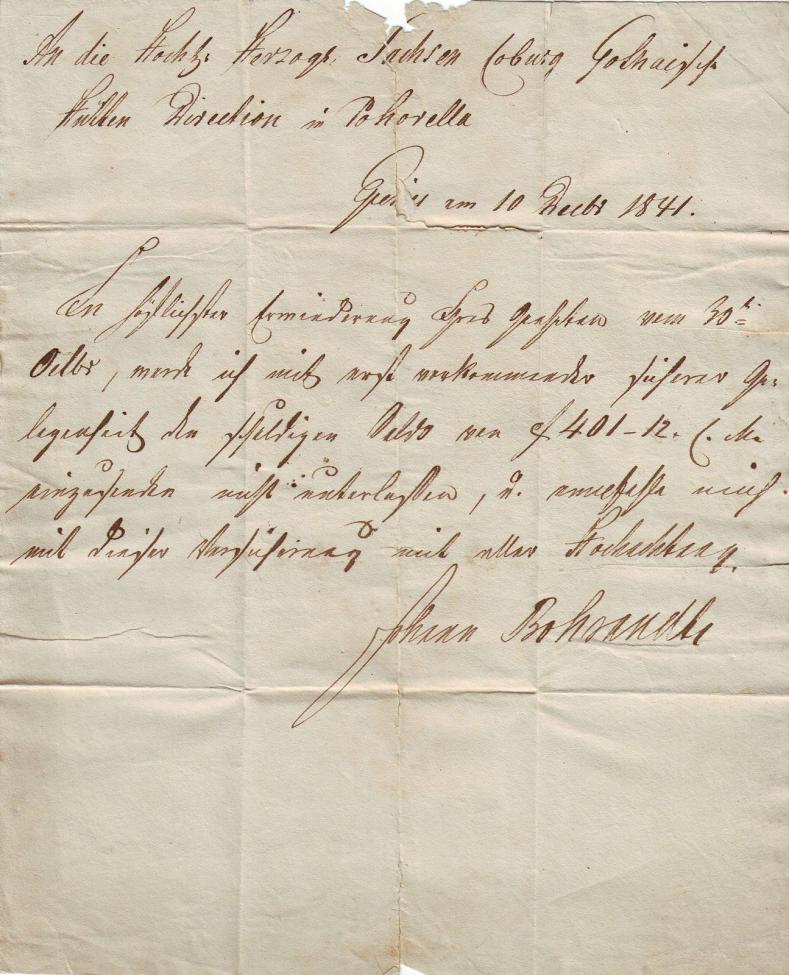 An die Hochf: Herzogl. Sachsen Coburg Gothaische
Hütten Direction in Pohorella
am 10 Decbr 1841.
In höflichster Erwiederung Ihres Geehrten vom 30t
Octbr, werde ich mit erst vorkommender sicherer Ge-
legenheit den schuldigen Saldo von f 401-12. C. M.
einzusenden nicht unterlassen, u. empfehle mich
mit dieser Versicherung mit aller Hochachtung.
Johann